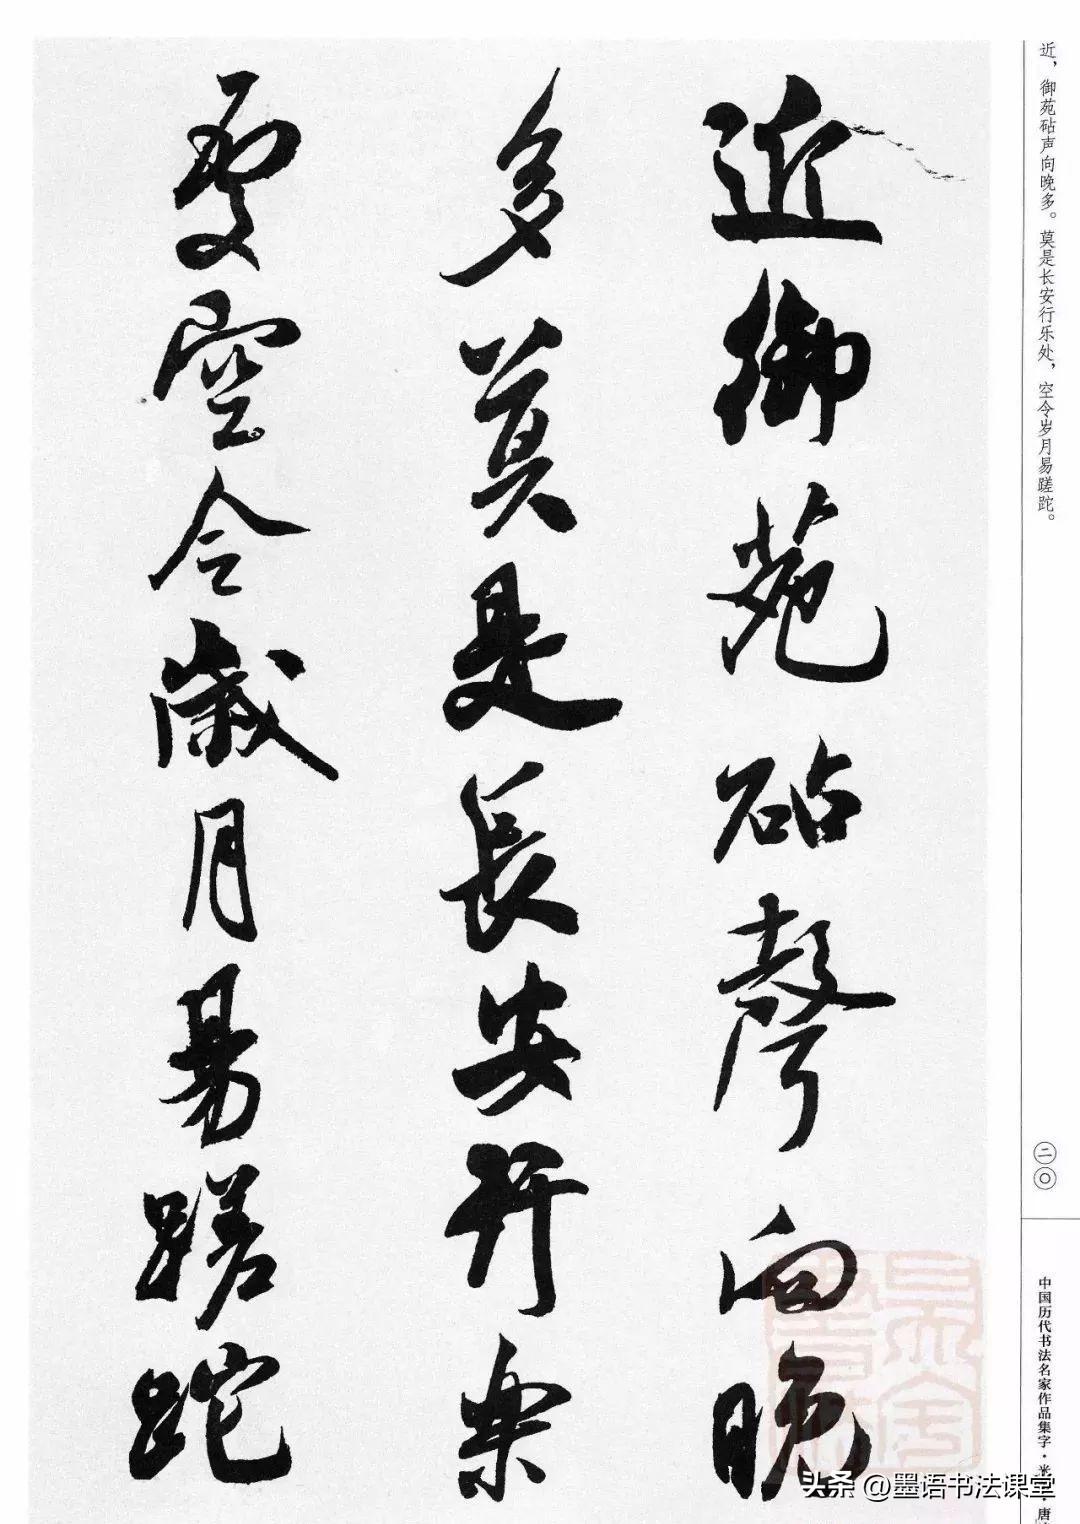 近，御苑砧声向晚多。莫是长安行乐处，空令岁月易蹉跎。
近御苑砧聲向晚
多莫是長安行樂
處空令歲月易蹉跎
二〇
中国历代书法名家作品集字·米
·唐
头条 @墨语书法课堂